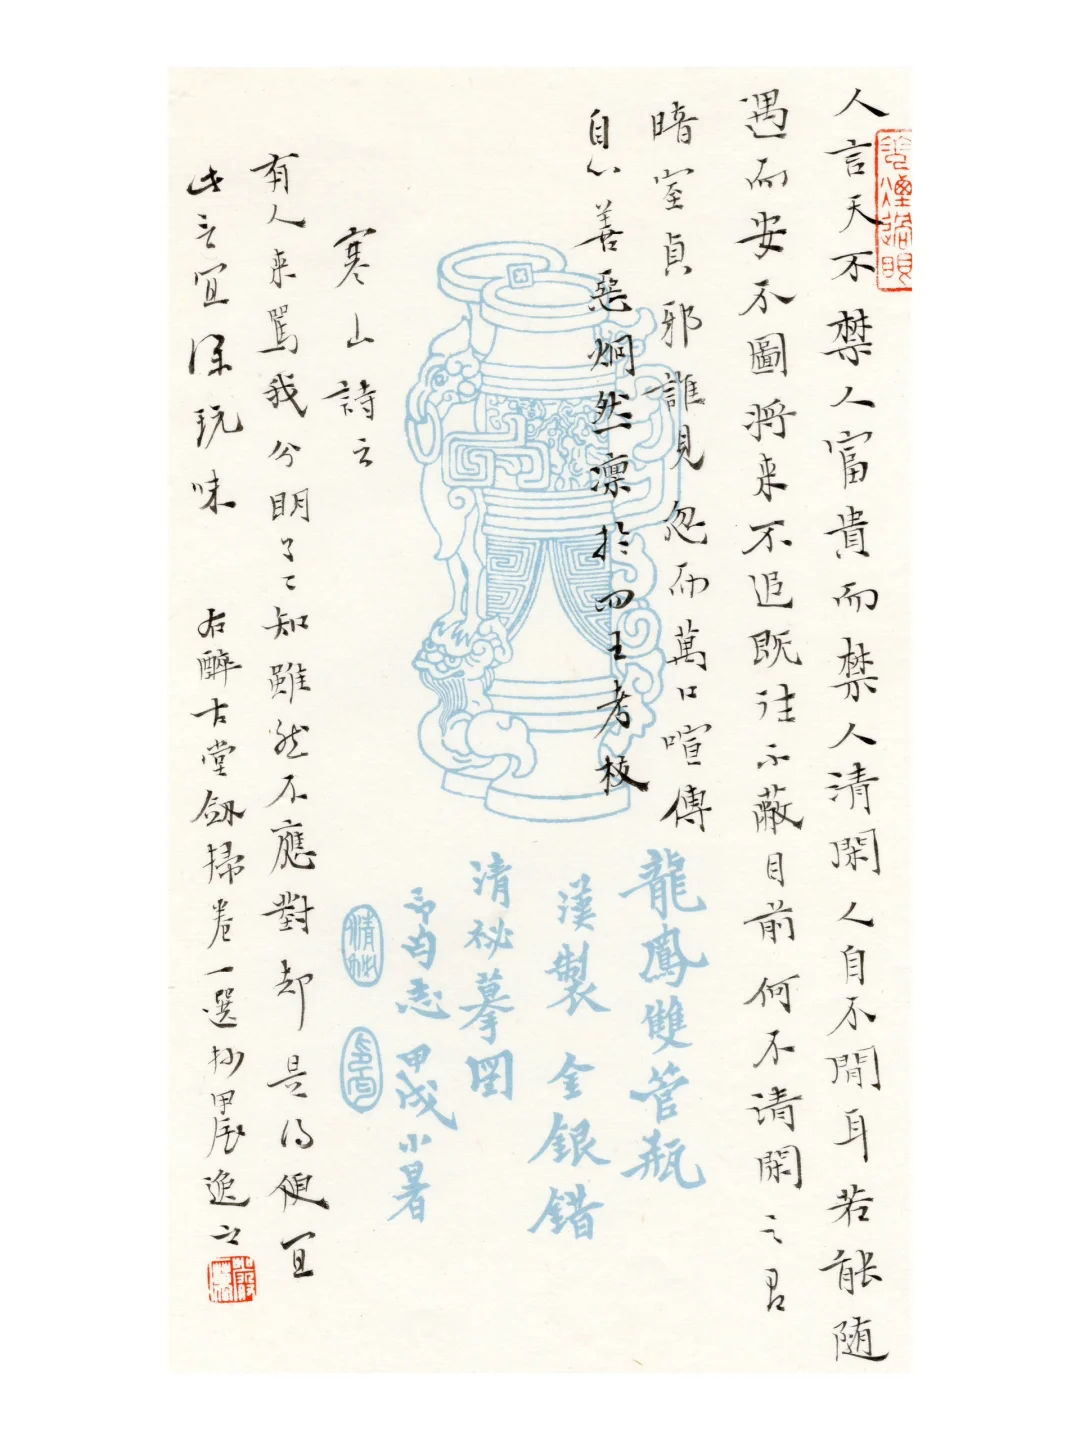 人言天不禁人富貴而禁人清閑人自不閒耳若能随
遇而安不圖將来不追既往不蔽目前何不清閑之有
暗室貞邪誰見忽而萬口喧傳
自心善惡炯然凛於四王考校
寒山詩云
有人来罵我分明了了知雖然不應對却是得便宜
此言宜深玩味
右醉古堂劔掃卷一選抄甲辰逸之
龍鳳雙管瓶
漢製 金銀錯
清祕摹図
甲戌小暑